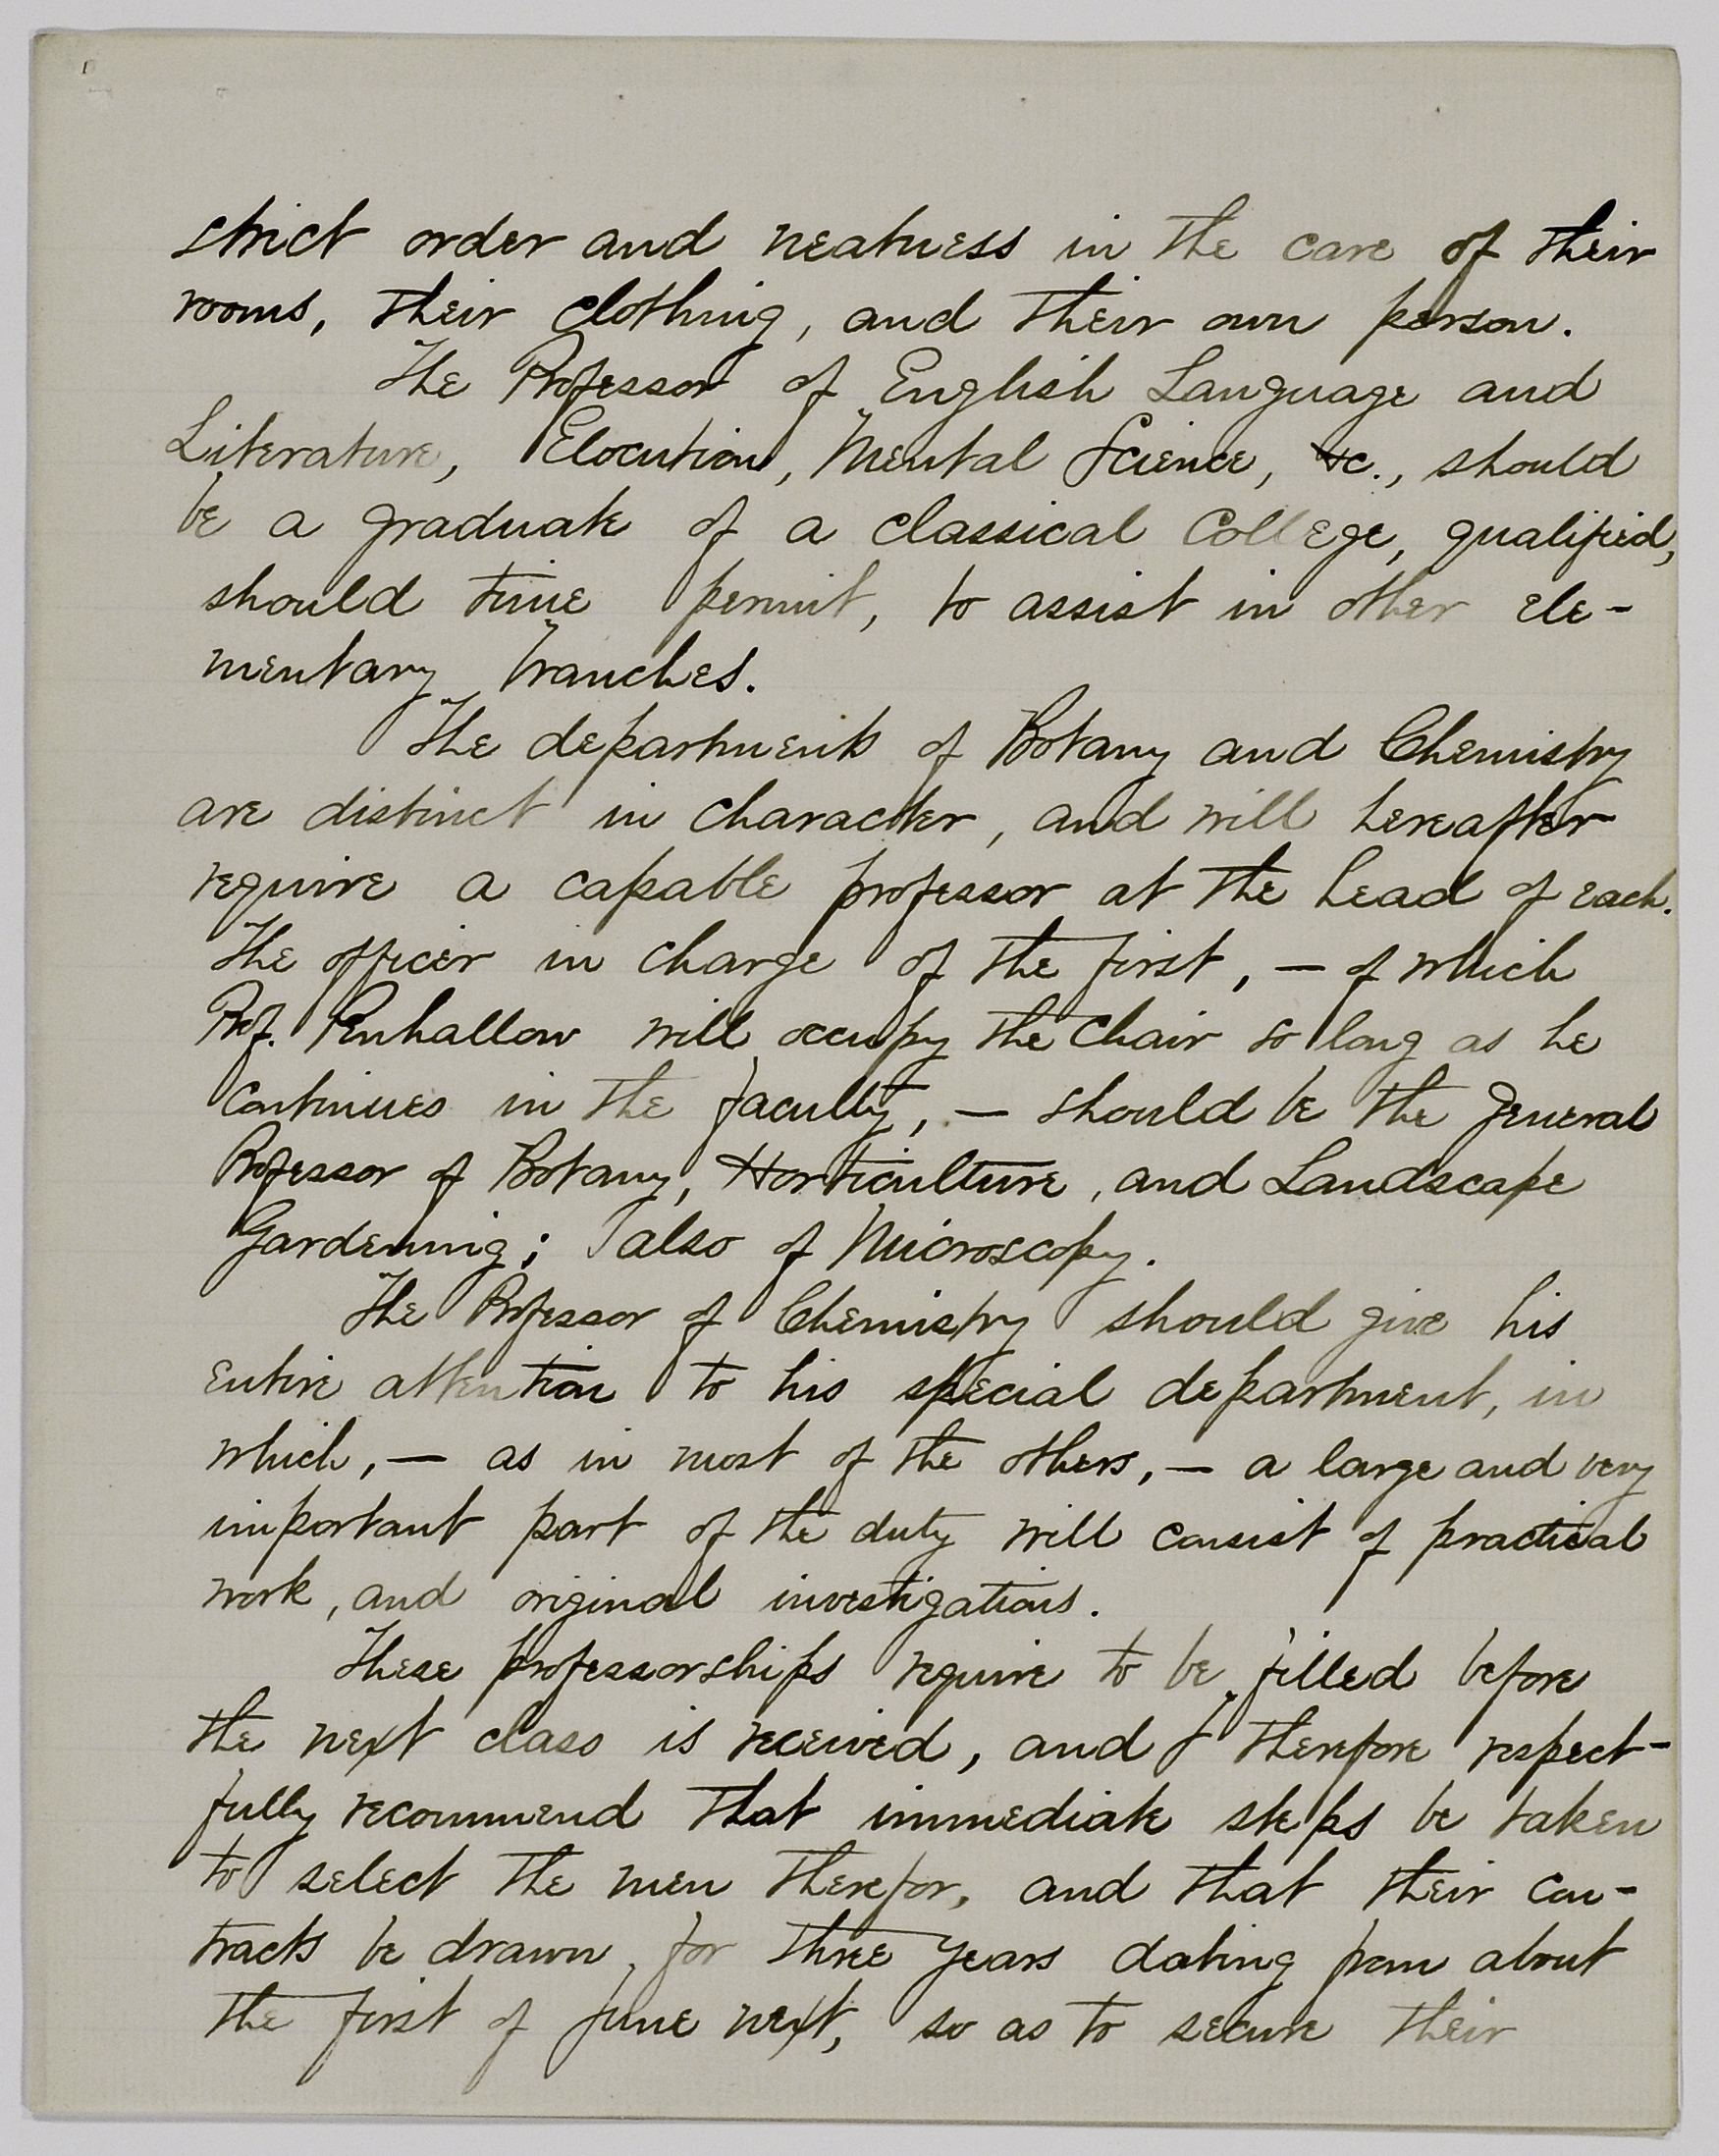 strict order and neatness in the care of their
rooms, their clothing, and their own person.
The Professor of English Language and
Literature, Elocution, Mental Science, &c., should
be a graduate of a classical College, qualified,
should time permit, to assist in other ele-
mentary branches.
The departments of Botany and Chemistry
are distinct in character, and will hereafter
require a capable professor at the head of each.
The officer in charge of the first, — of which
Prof. Penhallow will occupy the chair so long as he
continues in the faculty, — should be the general
Professor of Botany, Horticulture, and Landscape
Gardening; also of Microscopy.
The Professor of Chemistry should give his
entire attention to his special department, in
which, — as in most of the others, — a large and very
important part of the duty will consist of practical
work, and original investigations.
These professorships require to be filled before
the next class is received, and I therefore respect-
fully recommend that immediate steps be taken
to select the men therefor, and that their con-
tracts be drawn for three years dating from about
the first of June next, so as to secure their